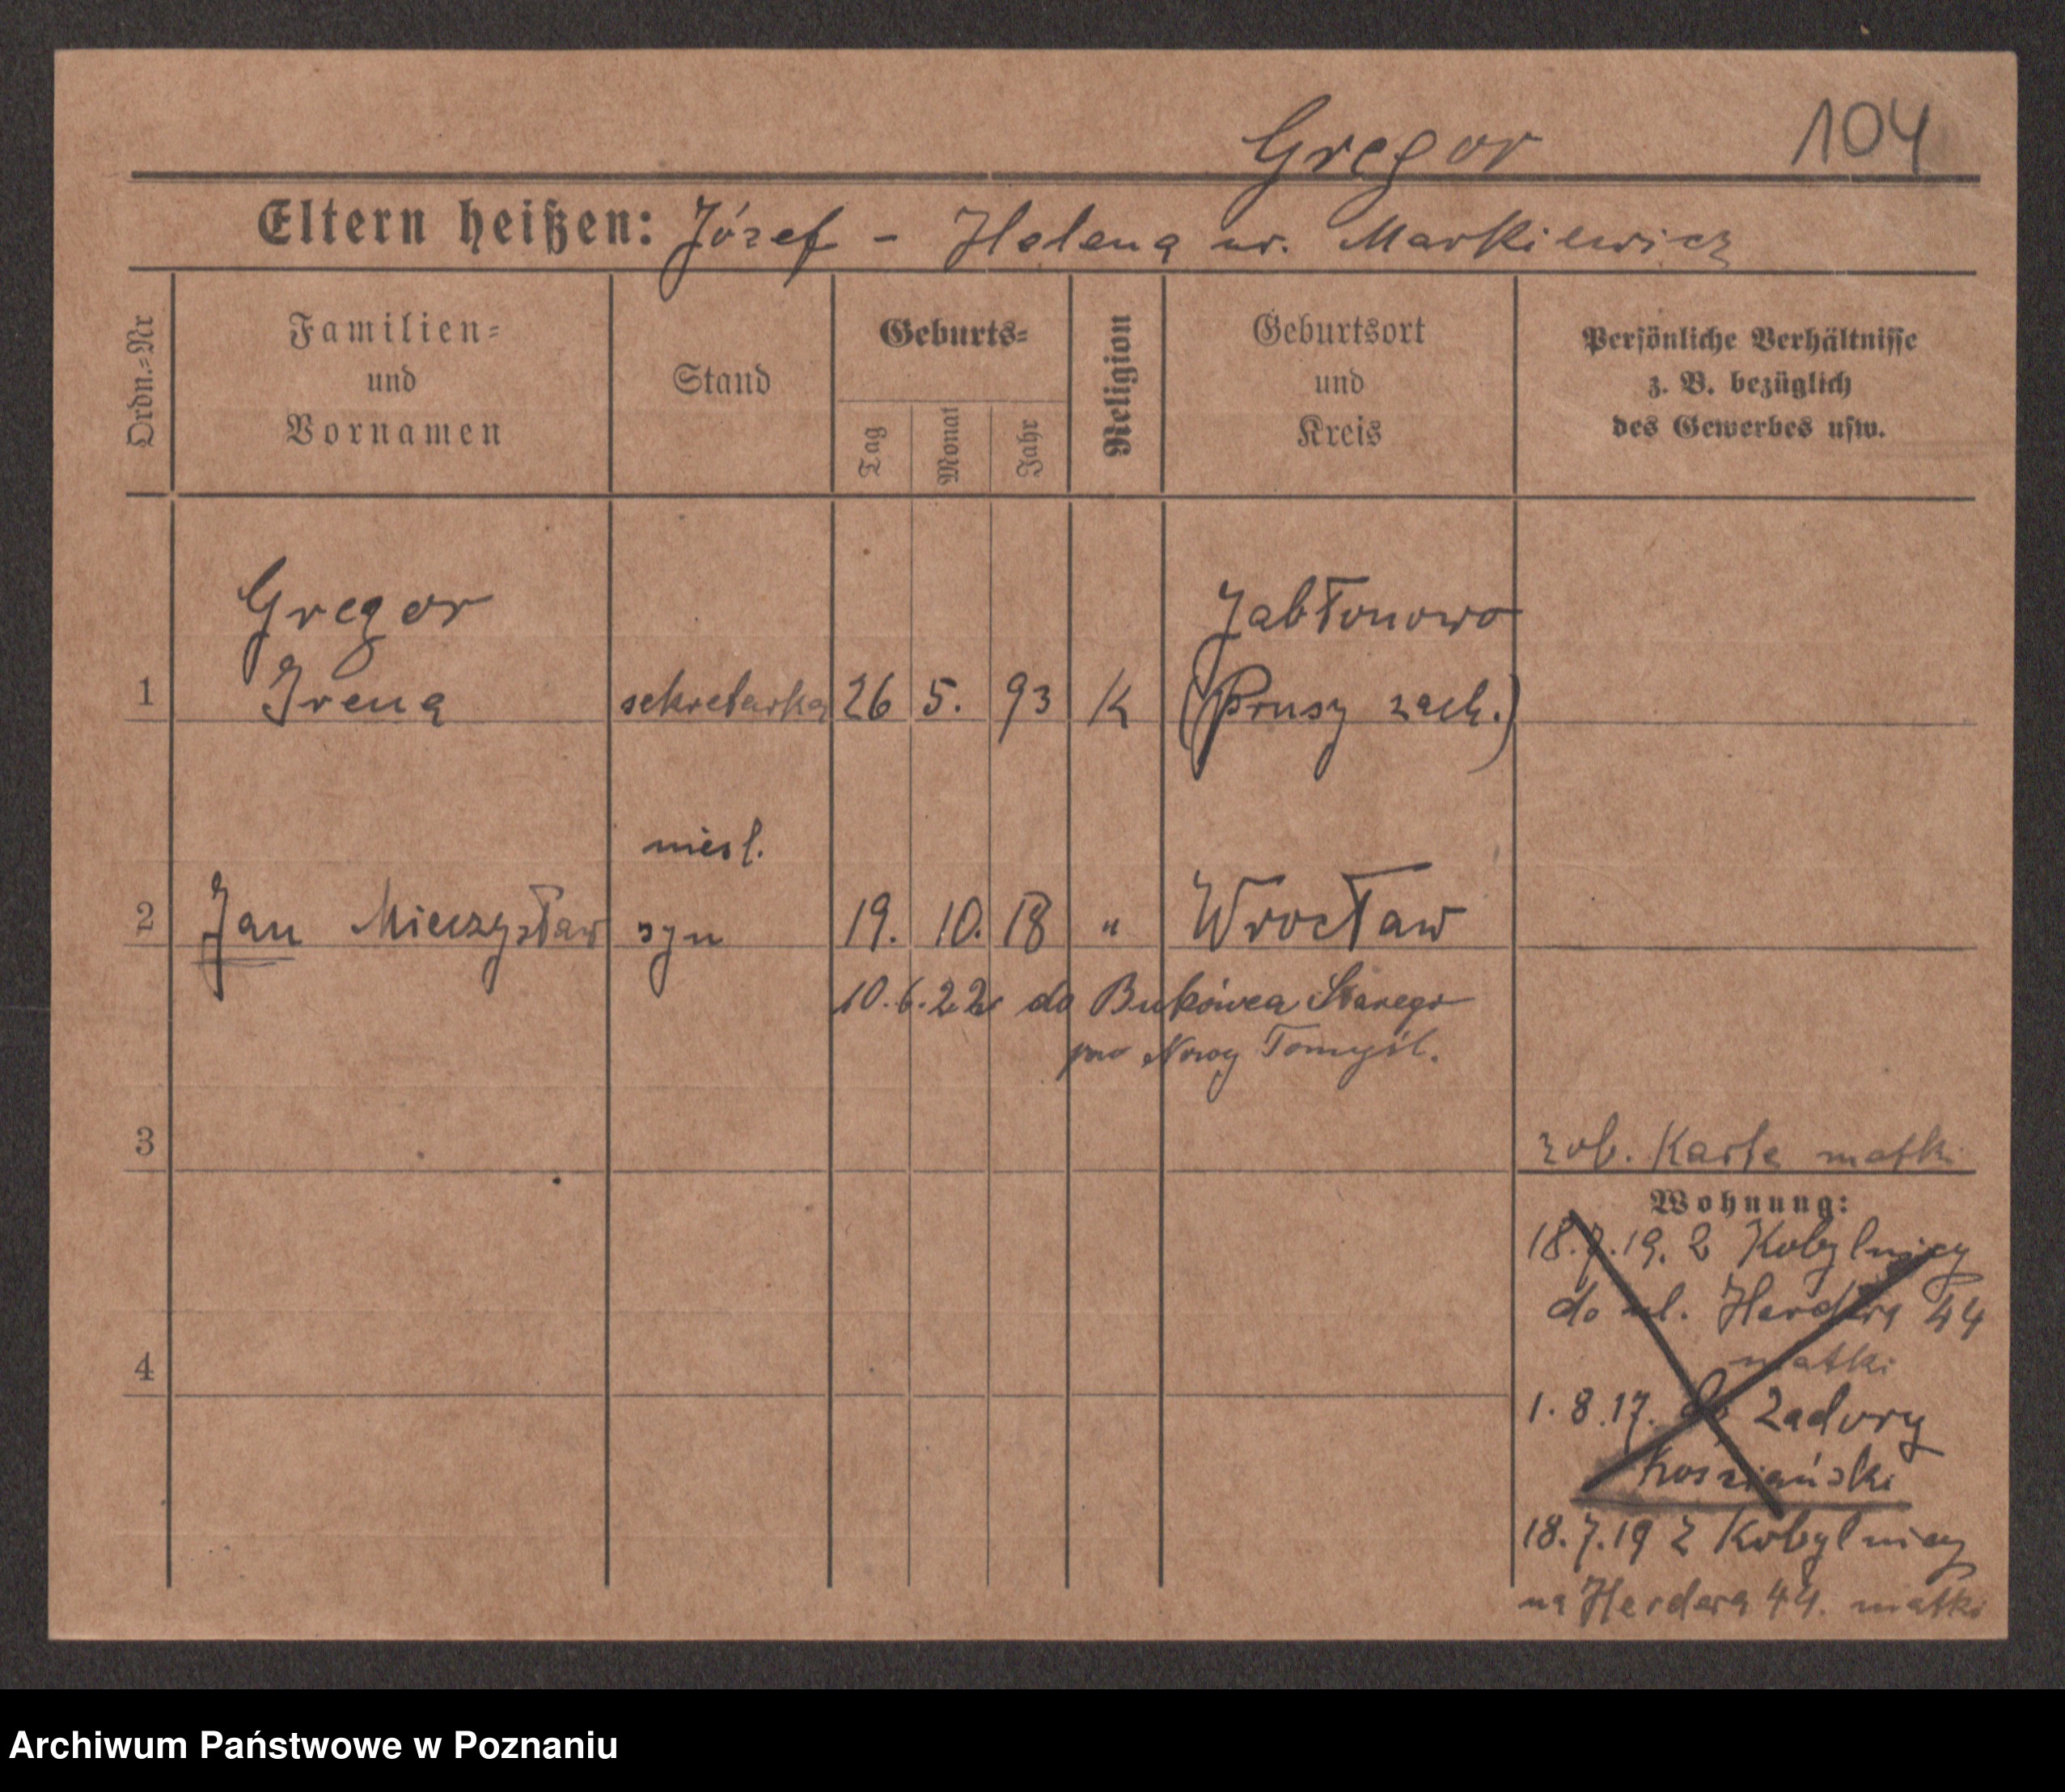 Gregor 104
Eltern heißen: Józef - Helena ur. Markiewicz
Ordn.=Nr
Familien=
und
Vornamen
Stand
Geburts=
Tag
Monat
Jahr
Religion
Geburtsort
und
Kreis
Persönliche Verhältnisse
z. B. bezüglich
des Gewerbes usw.
Gregor Jabłonowo
1 Irena sekretarka 26 5. 93 K (Prusy zach.)
2 Jan Mieczysław
syn 19. 10. 18 " Wrocław
10.6.22 do Bukówca Starego
Nowy Tomyśl.
3
zob. Karte matki
Wohnung:
18.7.19. z Kobylnicy
do ul. Herdera 44
matki
4
1.8.17. do Zadory
Kosziański
18.7.19 z Kobylnicy
na Herdera 44. matki
Archiwum Państwowe w Poznaniu